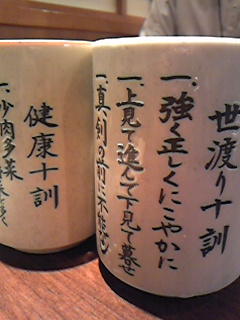 世渡り十訓
一、強く正しくにこやかに
一、上見て進んで下見て暮せ
一、真剣の前に不
健康十訓
一、少肉多菜